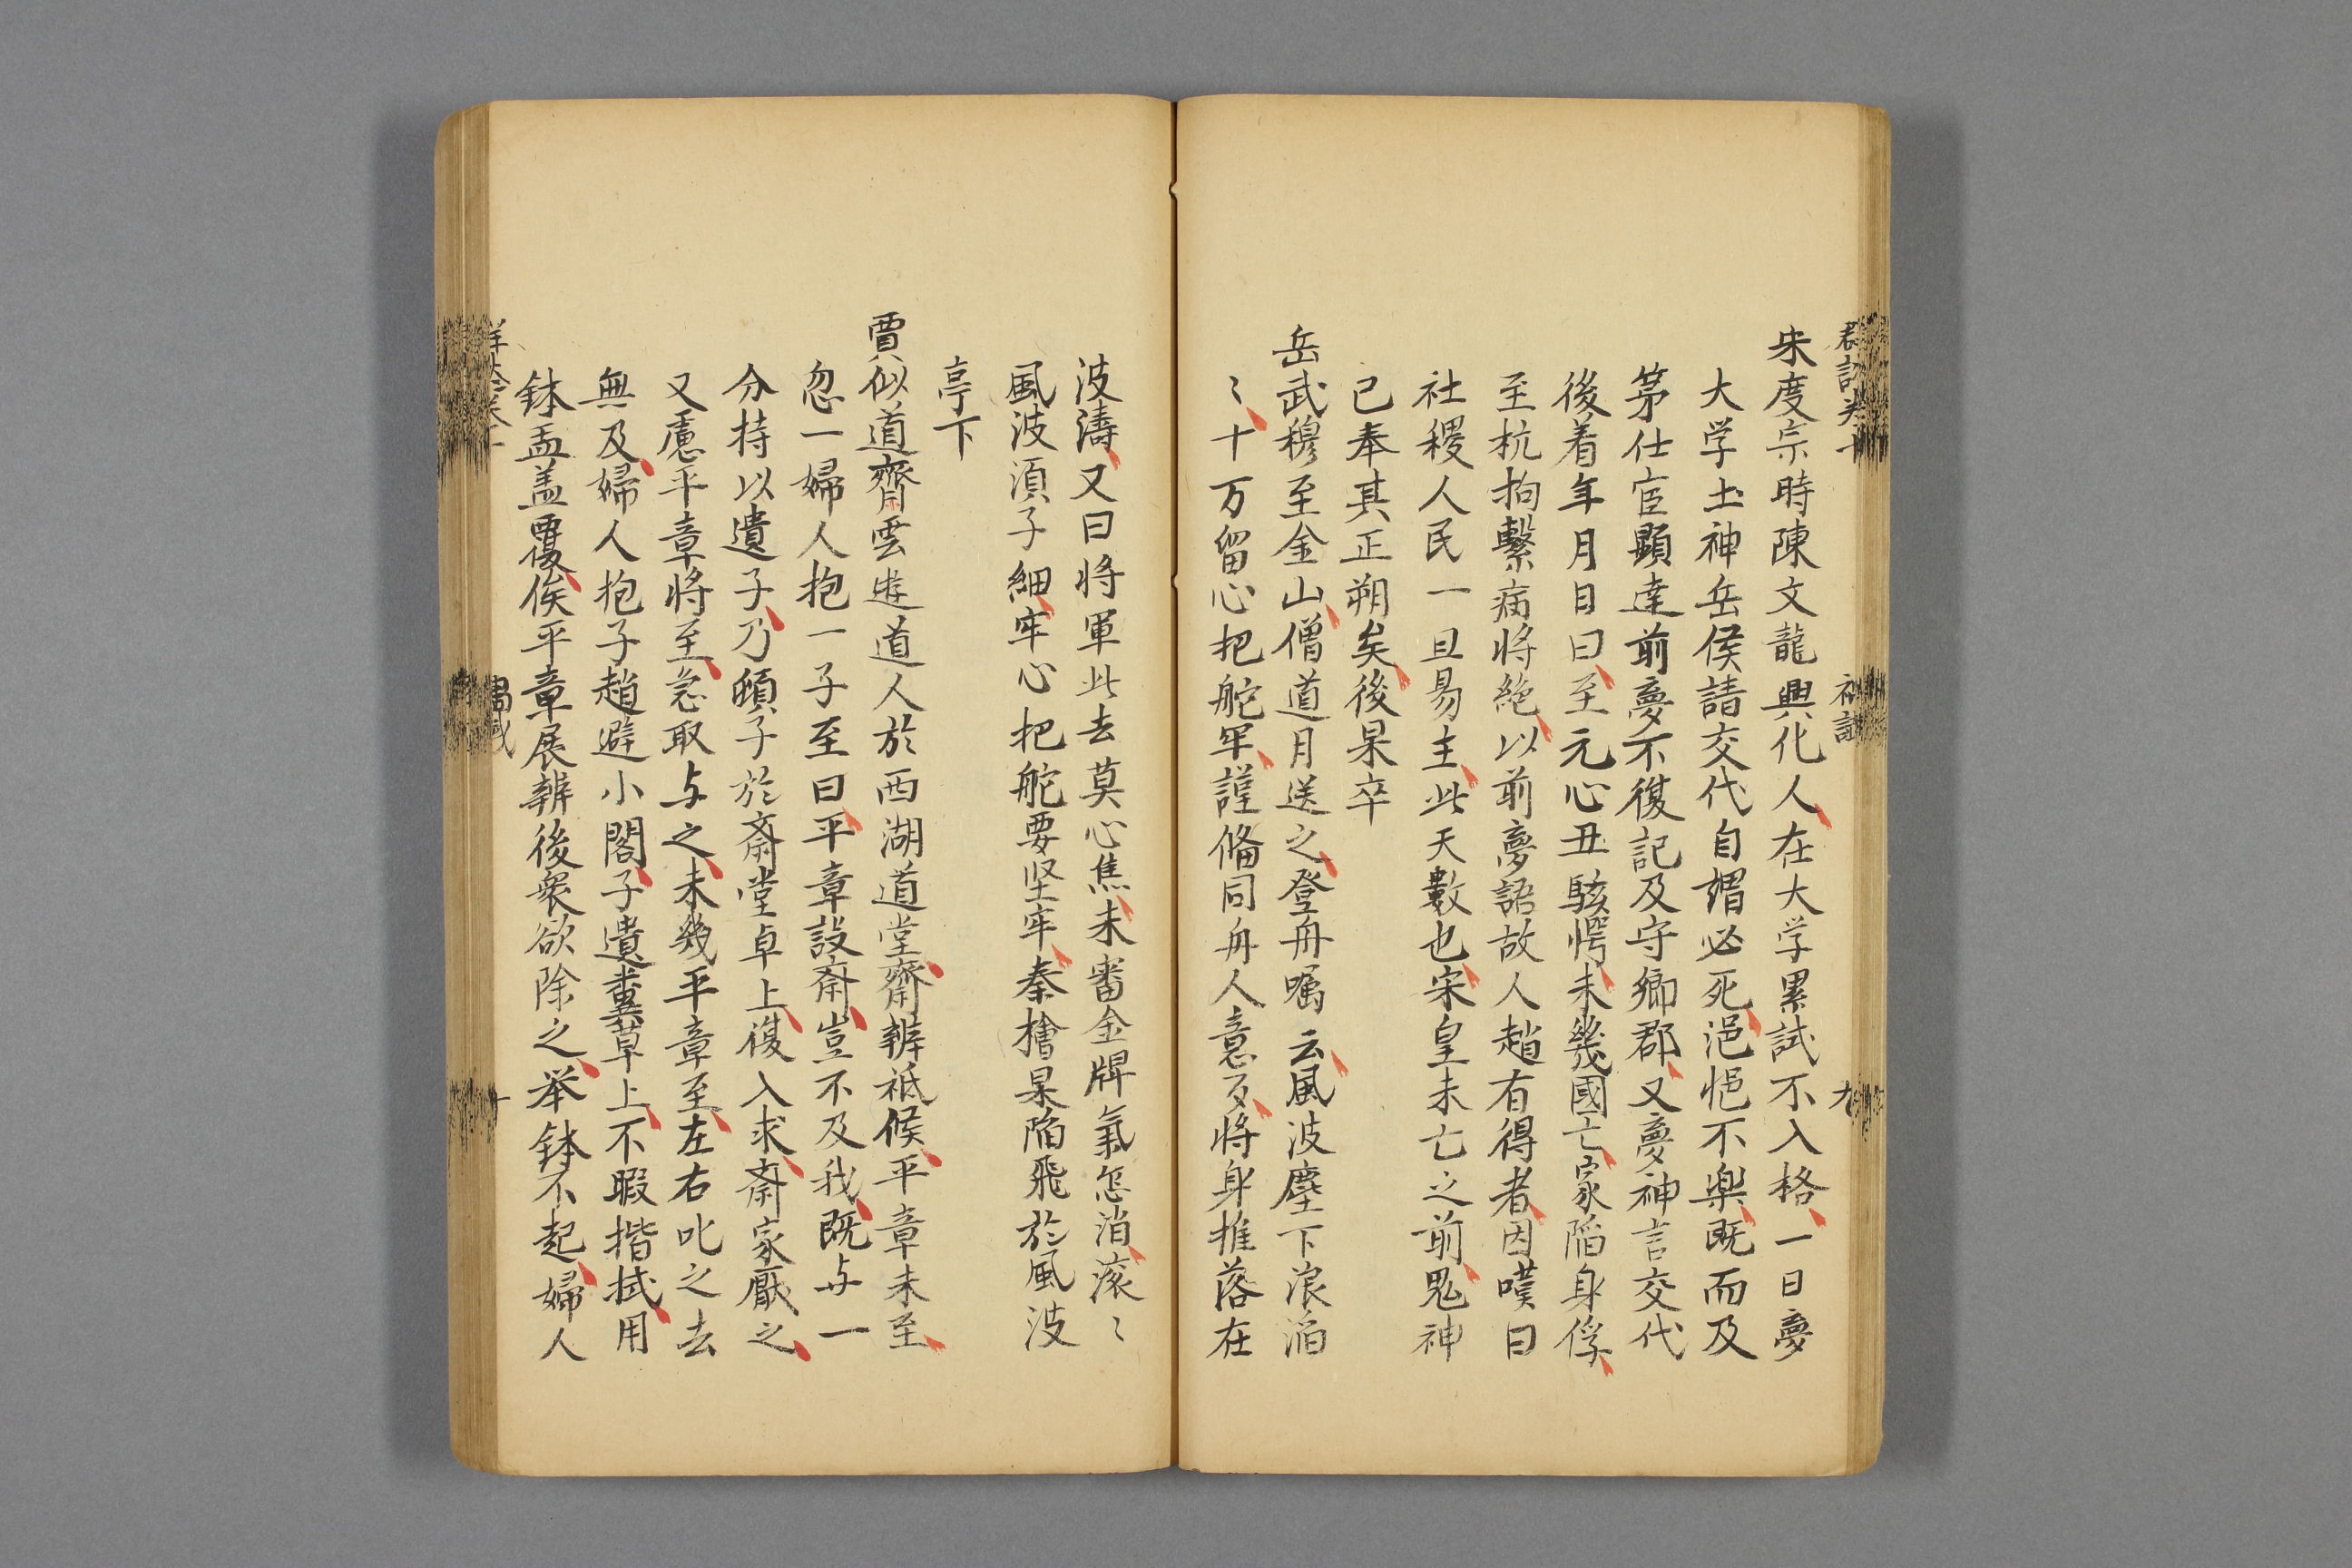 宋度宗時陳文龍興化人在大学累試不入格一日夢
大学土神岳侯請交代自謂必死浥悒不楽既而及
第仕宦顕達前夢不復記及守郷郡又夢神言交代
後着年月日曰至元心丑駭愕未幾國亡家陥身俘
至杭拘繫病将絶以前夢語故人趙有得者因嘆曰
社稷人民一旦易主此天數也宋皇未亡之前鬼神
已奉其正朔矣後果卒
岳武穆至金山僧道月送之登舟嘱云風波塵下浪滔
〻十万留心把舵牢謹俻同舟人意歹将身推落在
波濤又曰将軍此去莫心焦未審金牌氣怎消滚〻
風波湏子細牢心把舵要坚牢秦檜果陥飛於風波
亭下
賈似道齋雲逰道人於西湖道堂齋辦祗候平章未至
忽一婦人抱一子至曰平章設斎豈不及我既与一
分持以遺子乃頓子於斎堂卓上復入求斎家厭之
又慮平章将至急取与之未幾平章至左右叱之去
無及婦人抱子趙避小閣子遺糞草上不暇揩拭用
鉢盂盖覆俟平章展辦後衆欲除之举鉢不起婦人